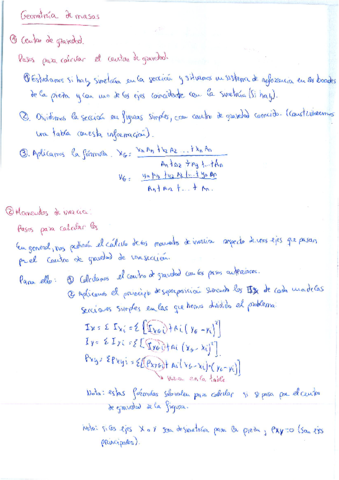 Geometría de masas
① Centro de gravedad.
Pasos para calcular el centro de gravedad:
① Estudiamos si hay simetría en la sección y situamos un sistema de referencia en los bordes
de la pieza y con uno de los ejes coincidente con la simetría (si hay).
② Dividimos la sección en figuras simples, con centro de gravedad conocido. (construiremos
una tabla con esta información).
③ Aplicamos la fórmula. XG = (x₁A₁ + x₂A₂ ... + xₙAₙ) / (A₁ + A₂ + A₃ + ... + Aₙ)
YG = (y₁A₁ + y₂A₂ + ... + yₙAₙ) / (A₁ + A₂ + ... + Aₙ)
② Momentos de inercia.
Pasos para calcular los
En general, nos pedirán el cálculo de los momentos de inercia respecto de unos ejes que pasan
por el centro de gravedad de una sección.
Para ello: ① Calculamos el centro de gravedad con los pasos anteriores.
② Aplicamos el principio de superposición sumando los Ix de cada una de las
secciones simples en las que hemos dividido el problema
Ix = Σ Ixi = Σ [Ixoi + Ai (yG - yi)²]
Iy = Σ Iyi = Σ [Iyoi + Ai (xG - xi)²]
Pxy = Σ Pxyi = Σ [Pxyoi + Ai (xG - xi)·(yG - yi)]
→ en la tabla
Nota: estas fórmulas solo valen para calcular si se pasa por el centro
de gravedad de la figura.
Nota: si los ejes X o Y son de simetría para la pieza, Pxy = 0 (son ejes
principales)